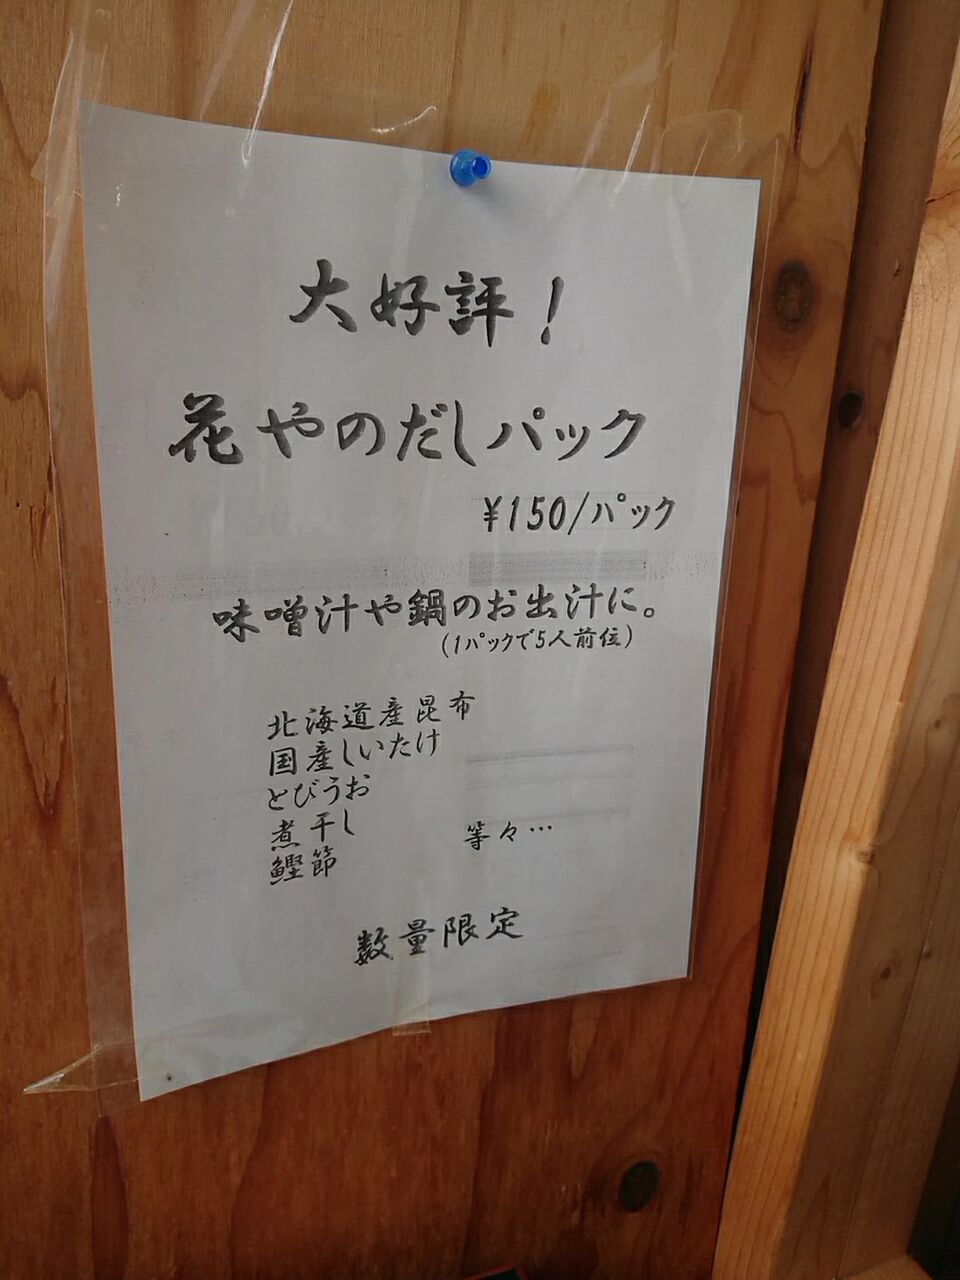 大好評！
花やのだしパック
¥150/パック
味噌汁や鍋のお出汁に。
(1パックで5人前位)
北海道産昆布
国産しいたけ
とびうお
煮干し
鰹節
等々…
数量限定